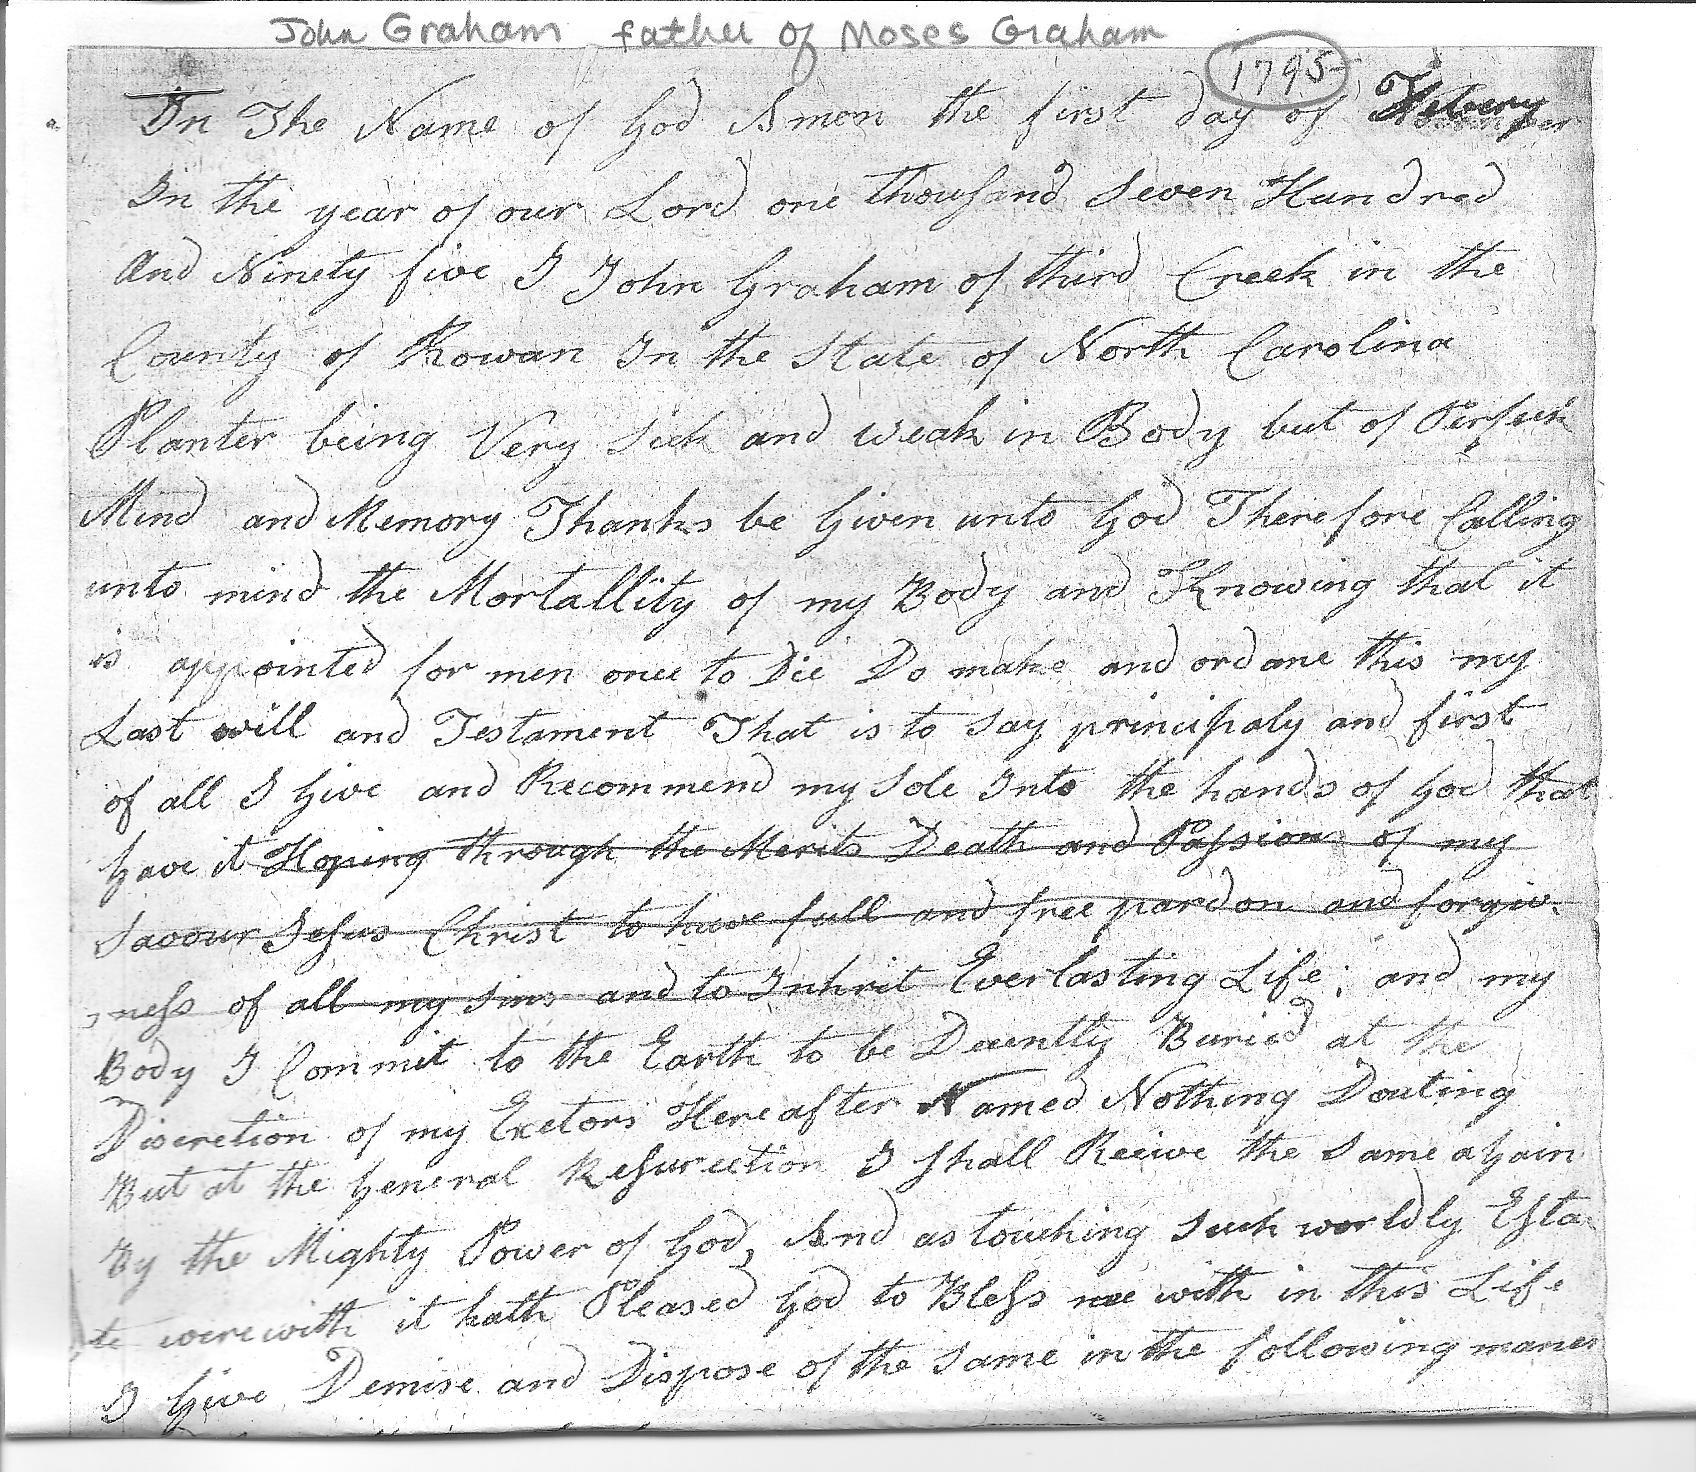 John Graham father of Moses Graham
1795
In The Name of God Amen the first day of Febery
In the year of our Lord one thousand Seven Hundred
And Ninety five I John Graham of third Creek in the
County of Rowan In the State of North Carolina
Planter being Very Sick and weak in Body but of Perfect
Mind and Memory Thanks be Given unto God Therefore Calling
unto mind the Mortallity of my Body and Knowing that it
is appointed for men once to Die Do make and ordane this my
Last will and Testament That is to Say principaly and first
of all I Give and Recommend my Sole Into the hands of God that
Gave it Hoping through the Merits Death and Passion of my
Savour Jesus Christ to have full and free pardon and forgiv-
,ness of all my Sins and to Inhrit Everlasting Life; and my
Body I Commit to the Earth to be Decently Buried at the
Discretion of my Exetors Hereafter Named Nothing Douting
But at the General Resurection I Shall Recive the Same again
By the Mighty Power of God, And as touching Such worldly Esta-
te werewith it hath Pleased God to Bless me with in this Life
I Give Demise and Dispose of the Same in the following maner